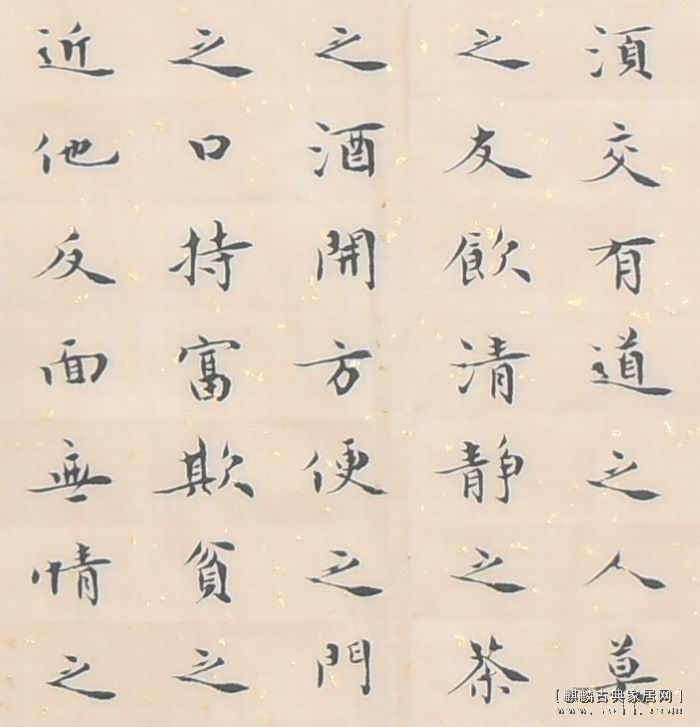 須交有道之人莫
之友飲清靜之茶
之酒開方便之門
之口持富欺貧之
近他反面無情之
[麒麟古典家居网]